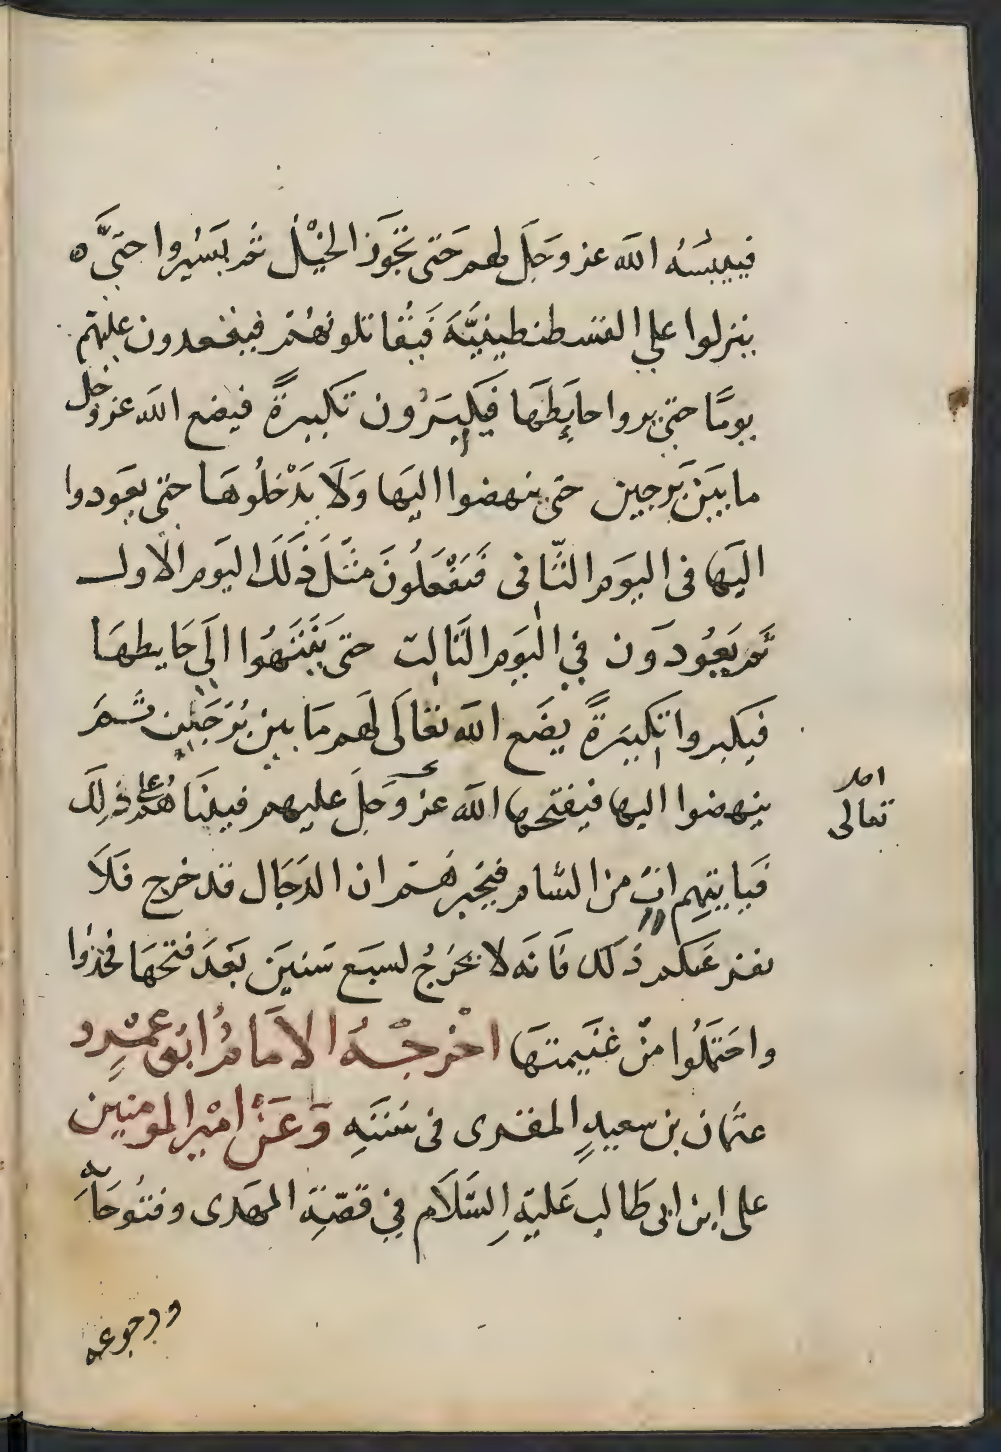 فييبسُهُ الله عز وجَل لهم حَتى تجَوَز الخيْل ثمر يسَيرُوا حتىَّ ه
ينزلوا علي القسطنطينيَّهَ فيُقاتلونهُمْ فيغعدون عليهم
يومًا حتى يروا حايطَهَا فيكبّرَون تكبيرةً فيضع الله عز وجل
ما بَين بَرجين حتى ينهضوا اليهَا وَلَا يدْخلُوهَا حتى يعَودوا
اليَها فى اليوَم الثَّانى فَيَفْعَلُونَ مثَل ذَلَك اليَوم الاول
ثَم يَعُودَون في اليَوم الثَالث حتى يَنَتَهُوا الَى حَايطهَا
فيكبروا تكبيرةً يضَع الله تعَالَى لَهم مَا بين بُرَجَين ثمَ
ينهضوا اليها فيفتحها الله عز وَجلَ عليهم فبينَا هُم على ذلِكَ
فيَاتيهم اتٍ من الشام فيخبرهُم ان الدَجَال قد خرج فَلَا
يفزعَنكم ذَلك فَانَه لا يخَرجُ لسبَع سَنينَ بَعَدَ فتحهَا فخذوا
واحتَمَلُوا منّ غنَيمتهَا اخْرجْهُ الامَامُ ابُو عمْرٍو
عثمان بن سعيدٍ المقرى فى سُنَنَهِ وَعَنْ اميْر المومنين
على ابن ابى طَالب عَليهِ السَّلَام في قصّةِ المهَدى وفتُوحَاته
ورجوعه
امر
تعالى